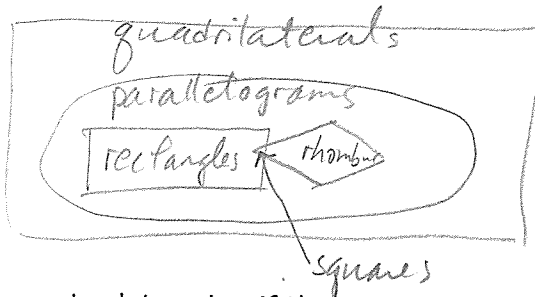 quadrilaterals
parallelograms
rectangles rhombus
squares